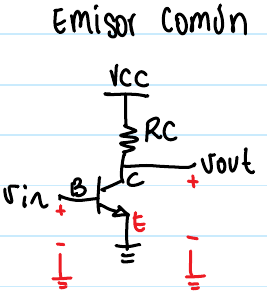 Emisor Común
VCC
RC
Vout
C
Vin
B
E
+
+
-
-